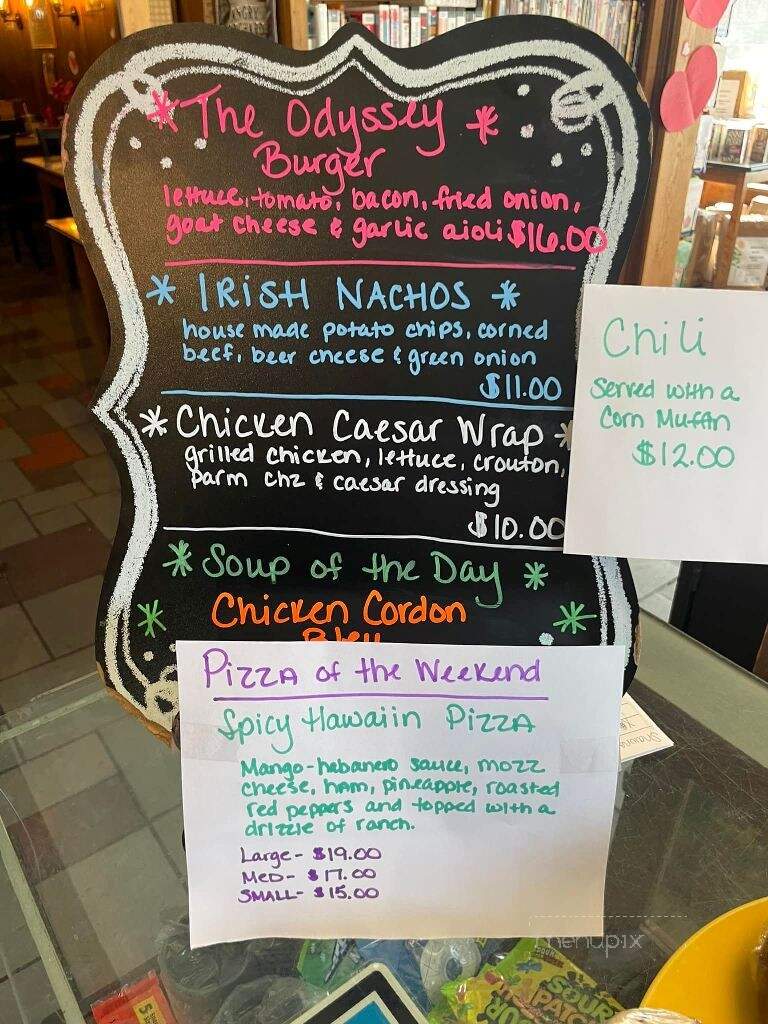 * The Odyssey *
Burger
lettuce, tomato, bacon, fried onion,
goat cheese & garlic aioli $16.00
* IRISH NACHOS *
house made potato chips, corned
beef, beer cheese & green onion
$11.00
* Chicken Caesar Wrap *
grilled chicken, lettuce, crouton,
parm chz & caesar dressing
$10.00
* Soup of the Day *
* Chicken Cordon *
Bleu
Chili
Served with a
Corn Muffin
$12.00
Pizza of the Weekend
Spicy Hawaiin Pizza
Mango-habanero sauce, mozz
cheese, ham, pineapple, roasted
red peppers and topped with a
drizzle of ranch.
Large- $19.00
MED- $17.00
SMALL- $15.00
menupix
SOUR
PATCH